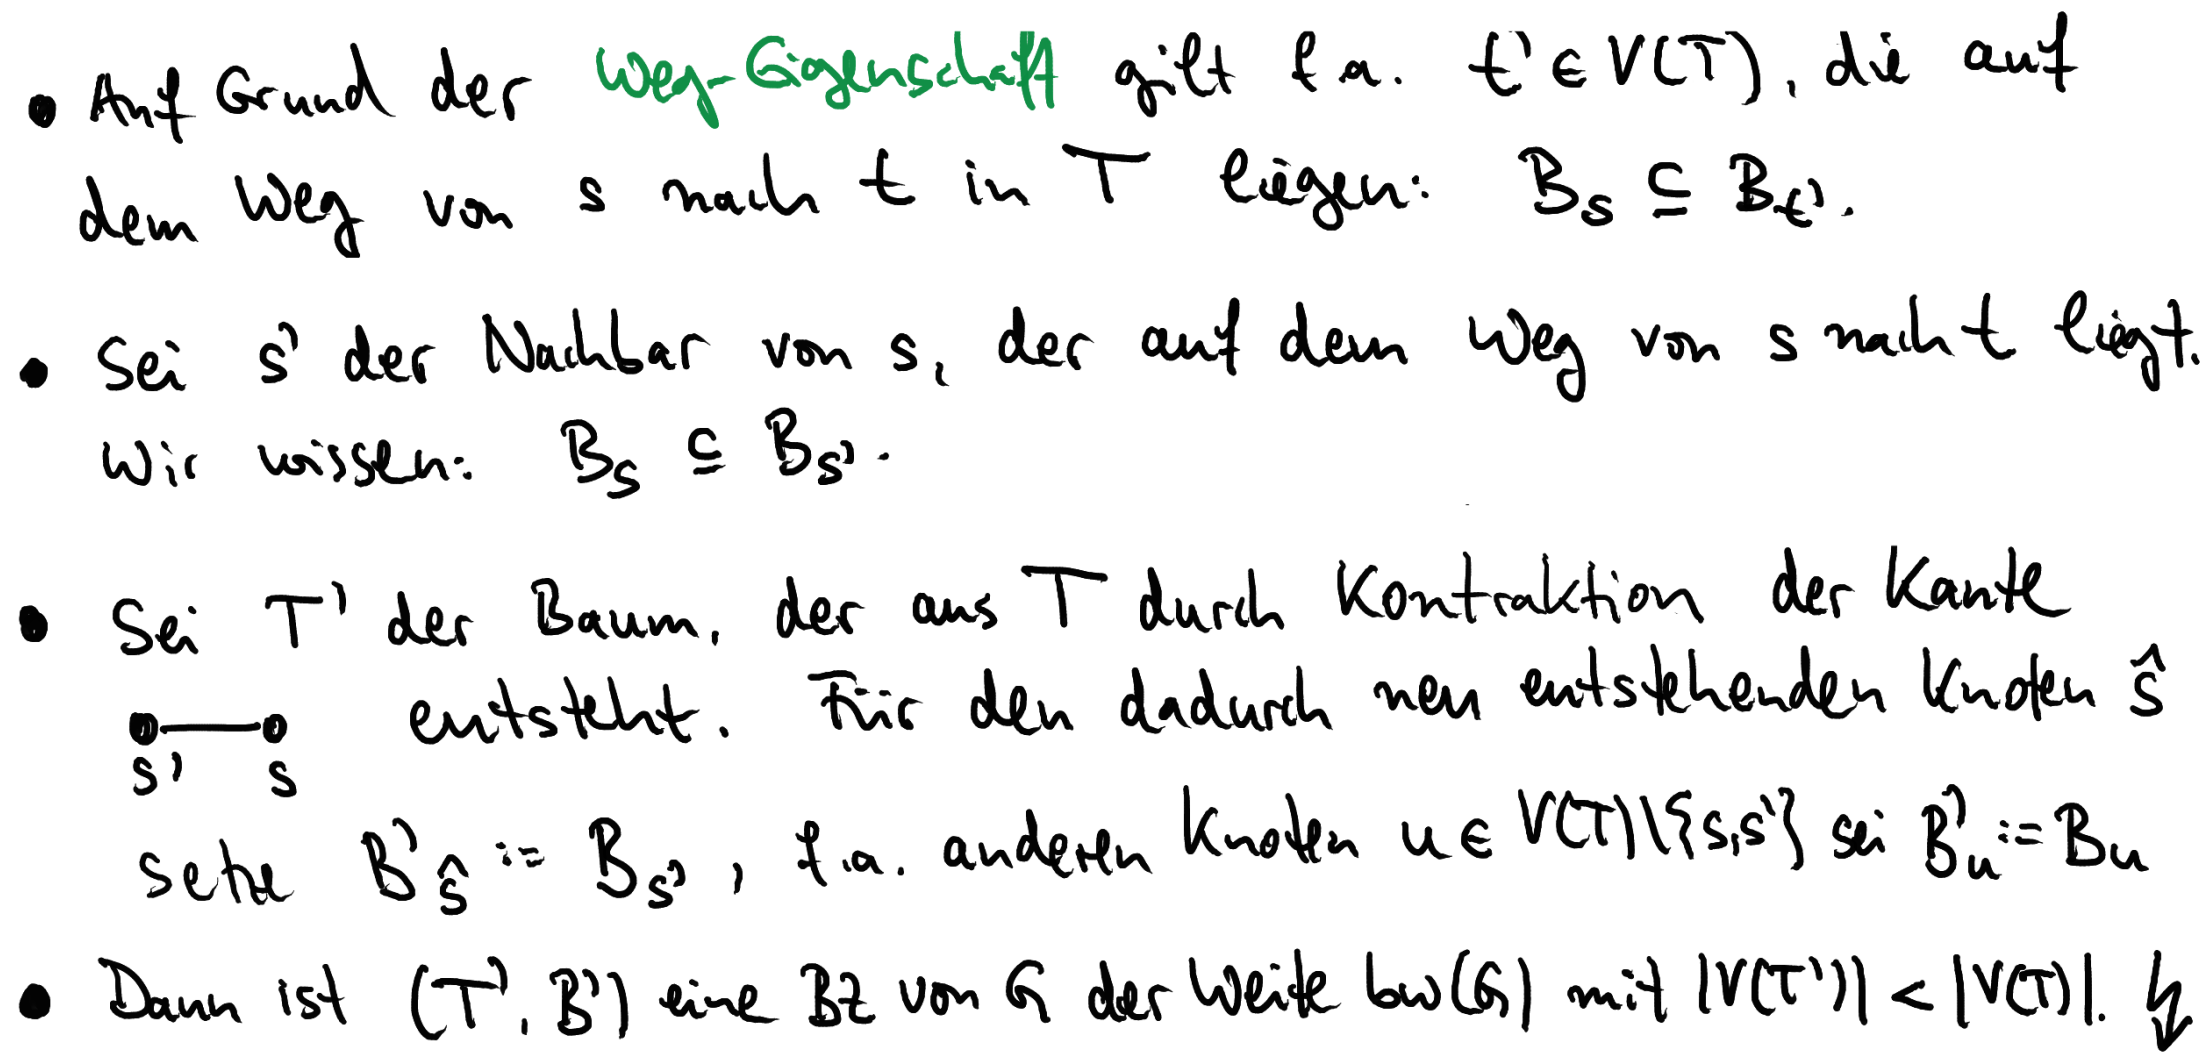 • Auf Grund der Weg-Eigenschaft gilt f.a. t' ∈ V(T), die auf
dem Weg von s nach t in T liegen: B_s ⊆ B_t'.
• Sei s' der Nachbar von s, der auf dem Weg von s nach t liegt.
Wir wissen: B_s ⊆ B_s'.
• Sei T' der Baum, der aus T durch Kontraktion der Kante
s' s entsteht. Für den dadurch neu entstehenden Knoten ŝ
setze B'_ŝ := B_s', f.a. anderen Knoten u ∈ V(T)\{s,s'} sei B'_u := B_u
• Dann ist (T', B') eine BZ von G der Weite bw(G) mit |V(T')| < |V(T)|. ↯